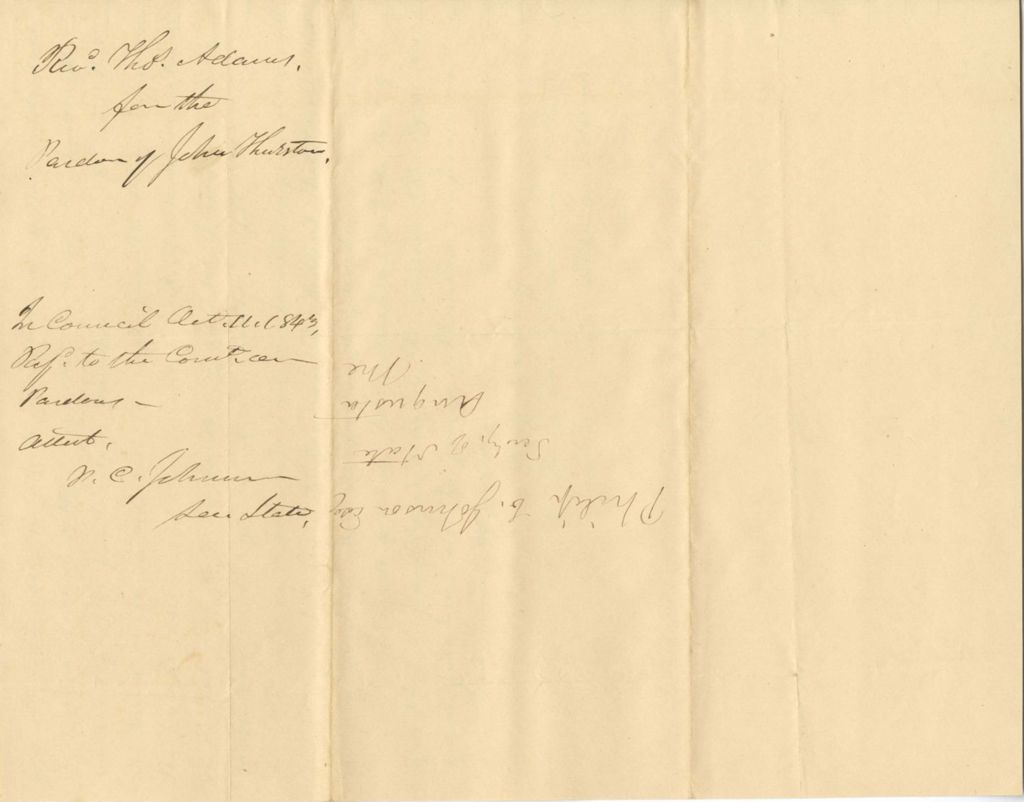 Revd. Thos. Adams,
for the
Pardon of John Thurston,
In Council Oct. 11. 1843,
Ref. to the Comtee. on
Pardons –
Attest,
P. C. Johnson
Sec State,
Philip C. Johnson Esq
Secty. of State
Augusta
Me